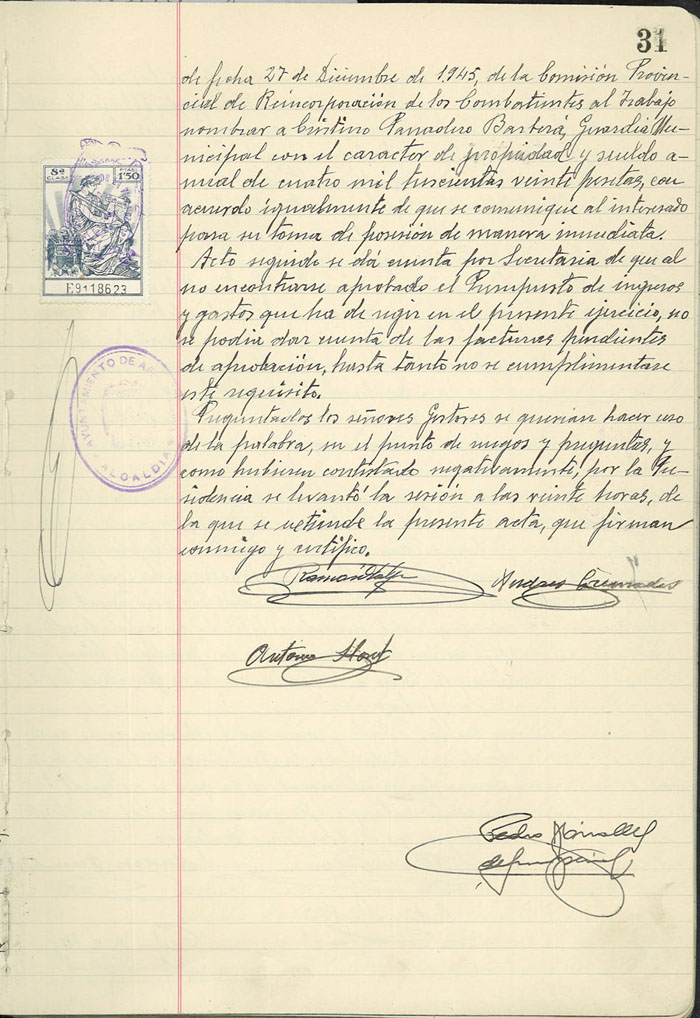 31
de fecha 27 de Diciembre de 1.945, de la Comisión Provin-
cial de Reincorporación de los Combatientes al Trabajo
nombrar a Cristino Panadero Barberá, Guardia Mu-
nicipal con el caracter de propiedad y sueldo a-
nual de cuatro mil trescientas veinte pesetas, con
acuerdo igualmente de que se comunique al interesado
para su toma de posesión de manera inmediata.
Acto seguido se dá cuenta por Secretaria de que al
no encontrarse aprobado el Presupuesto de ingresos
y gastos que ha de regir en el presente ejercicio, no
se podia dar cuenta de las facturas pendientes
de aprobación, hasta tanto no se cumplimentase
este requisito.
Preguntados los señores Gestores se querian hacer uso
de la palabra, en el punto de ruegos y preguntas, y
como hubiesen contestado negativamente, por la Pre-
sidencia se levantó la sesión a las veinte horas, de
la que se extiende la presente acta, que firman
conmigo y certifico.
Ramón
Andres
Antonio Lloret
Pedro
8ª CLASE
1'50
E9118623
AYUNTAMIENTO DE
ALCALDIA